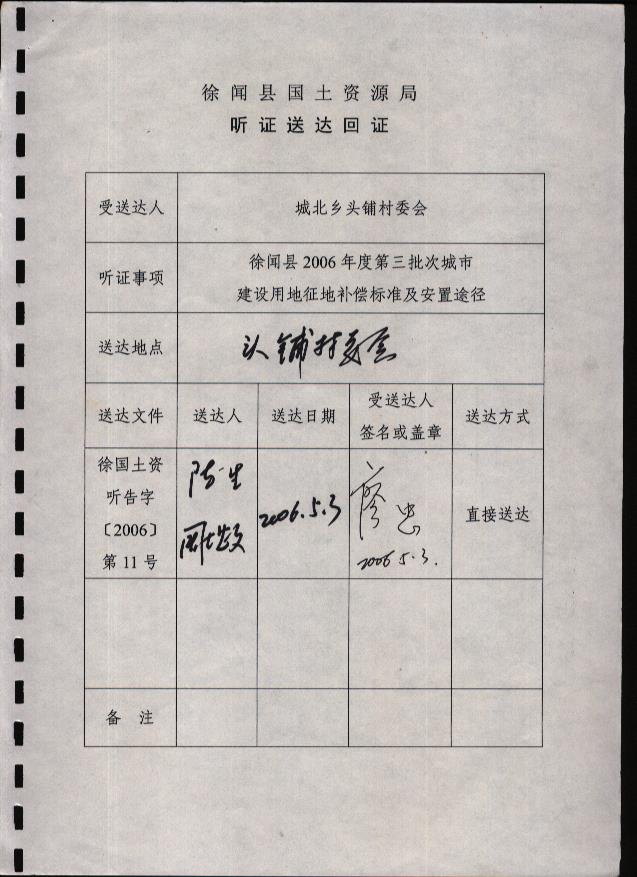 徐闻县国土资源局
听证送达回证
受送达人
城北乡头铺村委会
听证事项
徐闻县2006年度第三批次城市
建设用地征地补偿标准及安置途径
送达地点
头铺村委会
送达文件
送达人
送达日期
受送达人
签名或盖章
送达方式
徐国土资
听告字
〔2006〕
第11号
2006.5.3
廖忠
2006.5.3.
直接送达
备 注